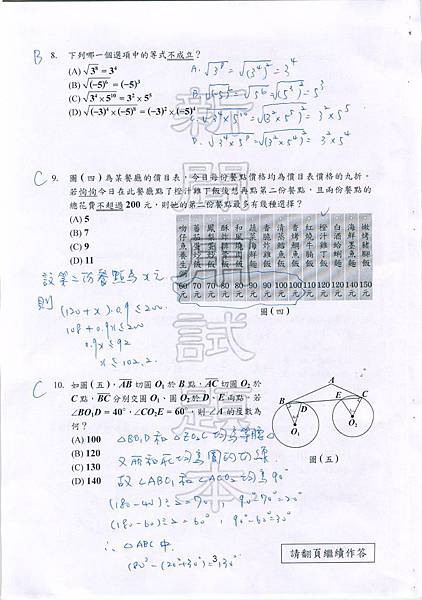 B 8. 下列哪一個選項中的等式不成立？
(A) √3⁸ = 3⁴
(B) √(−5)⁶ = (−5)³
(C) √3⁴×5¹⁰ = 3²×5⁵
(D) √(−3)⁴×(−5)⁸ = (−3)²×(−5)⁴
A. √3⁸ = √(3⁴)² = 3⁴
B. √(-5)⁶ = √5⁶ = √(5³)² = 5³
C. √3⁴×5¹⁰ = √(3²×5⁵)² = 3²×5⁵
D. √3⁴×5⁸ = √(3²×5⁴)² = 3²×5⁴
C 9. 圖(四)為某餐廳的價目表，今日每份餐點價格均為價目表價格的九折。
若恂恂今日在此餐廳點了橙汁雞丁飯後想再點第二份餐點，且兩份餐點的
總花費不超過 200 元，則她的第二份餐點最多有幾種選擇？
(A) 5
(B) 7
(C) 9
(D) 11
60元 70元 80元 80元 80元 90元 90元 100元 100元 110元 120元 120元 140元 150元
圖(四)
設第二份餐點為x元
則
(120+x)·0.9 ≤ 200
108+0.9x ≤ 200
0.9x ≤ 92
x ≤ 102.2
C 10. 如圖(五)，AB切圓 O₁ 於 B 點，AC切圓 O₂ 於
C 點，BC分別交圓 O₁、圓 O₂於 D、E 兩點。若
∠BO₁D = 40°，∠CO₂E = 60°，則 ∠A 的度數為
何？
(A) 100
(B) 120
(C) 130
(D) 140
A
B D E C
O₁ O₂
圖(五)
△BO₁D和△EO₂C均為等腰△
又AB和AC均為圓的切線
故∠ABO₁和∠ACO₂均為90°
(180-40)÷2 = 70° 90°-70°=20°
(180-60)÷2 = 60° 90°-60°=30°
∴ △ABC中
180°-(20°+30°)=130°
3
請翻頁繼續作答
新聞試題本